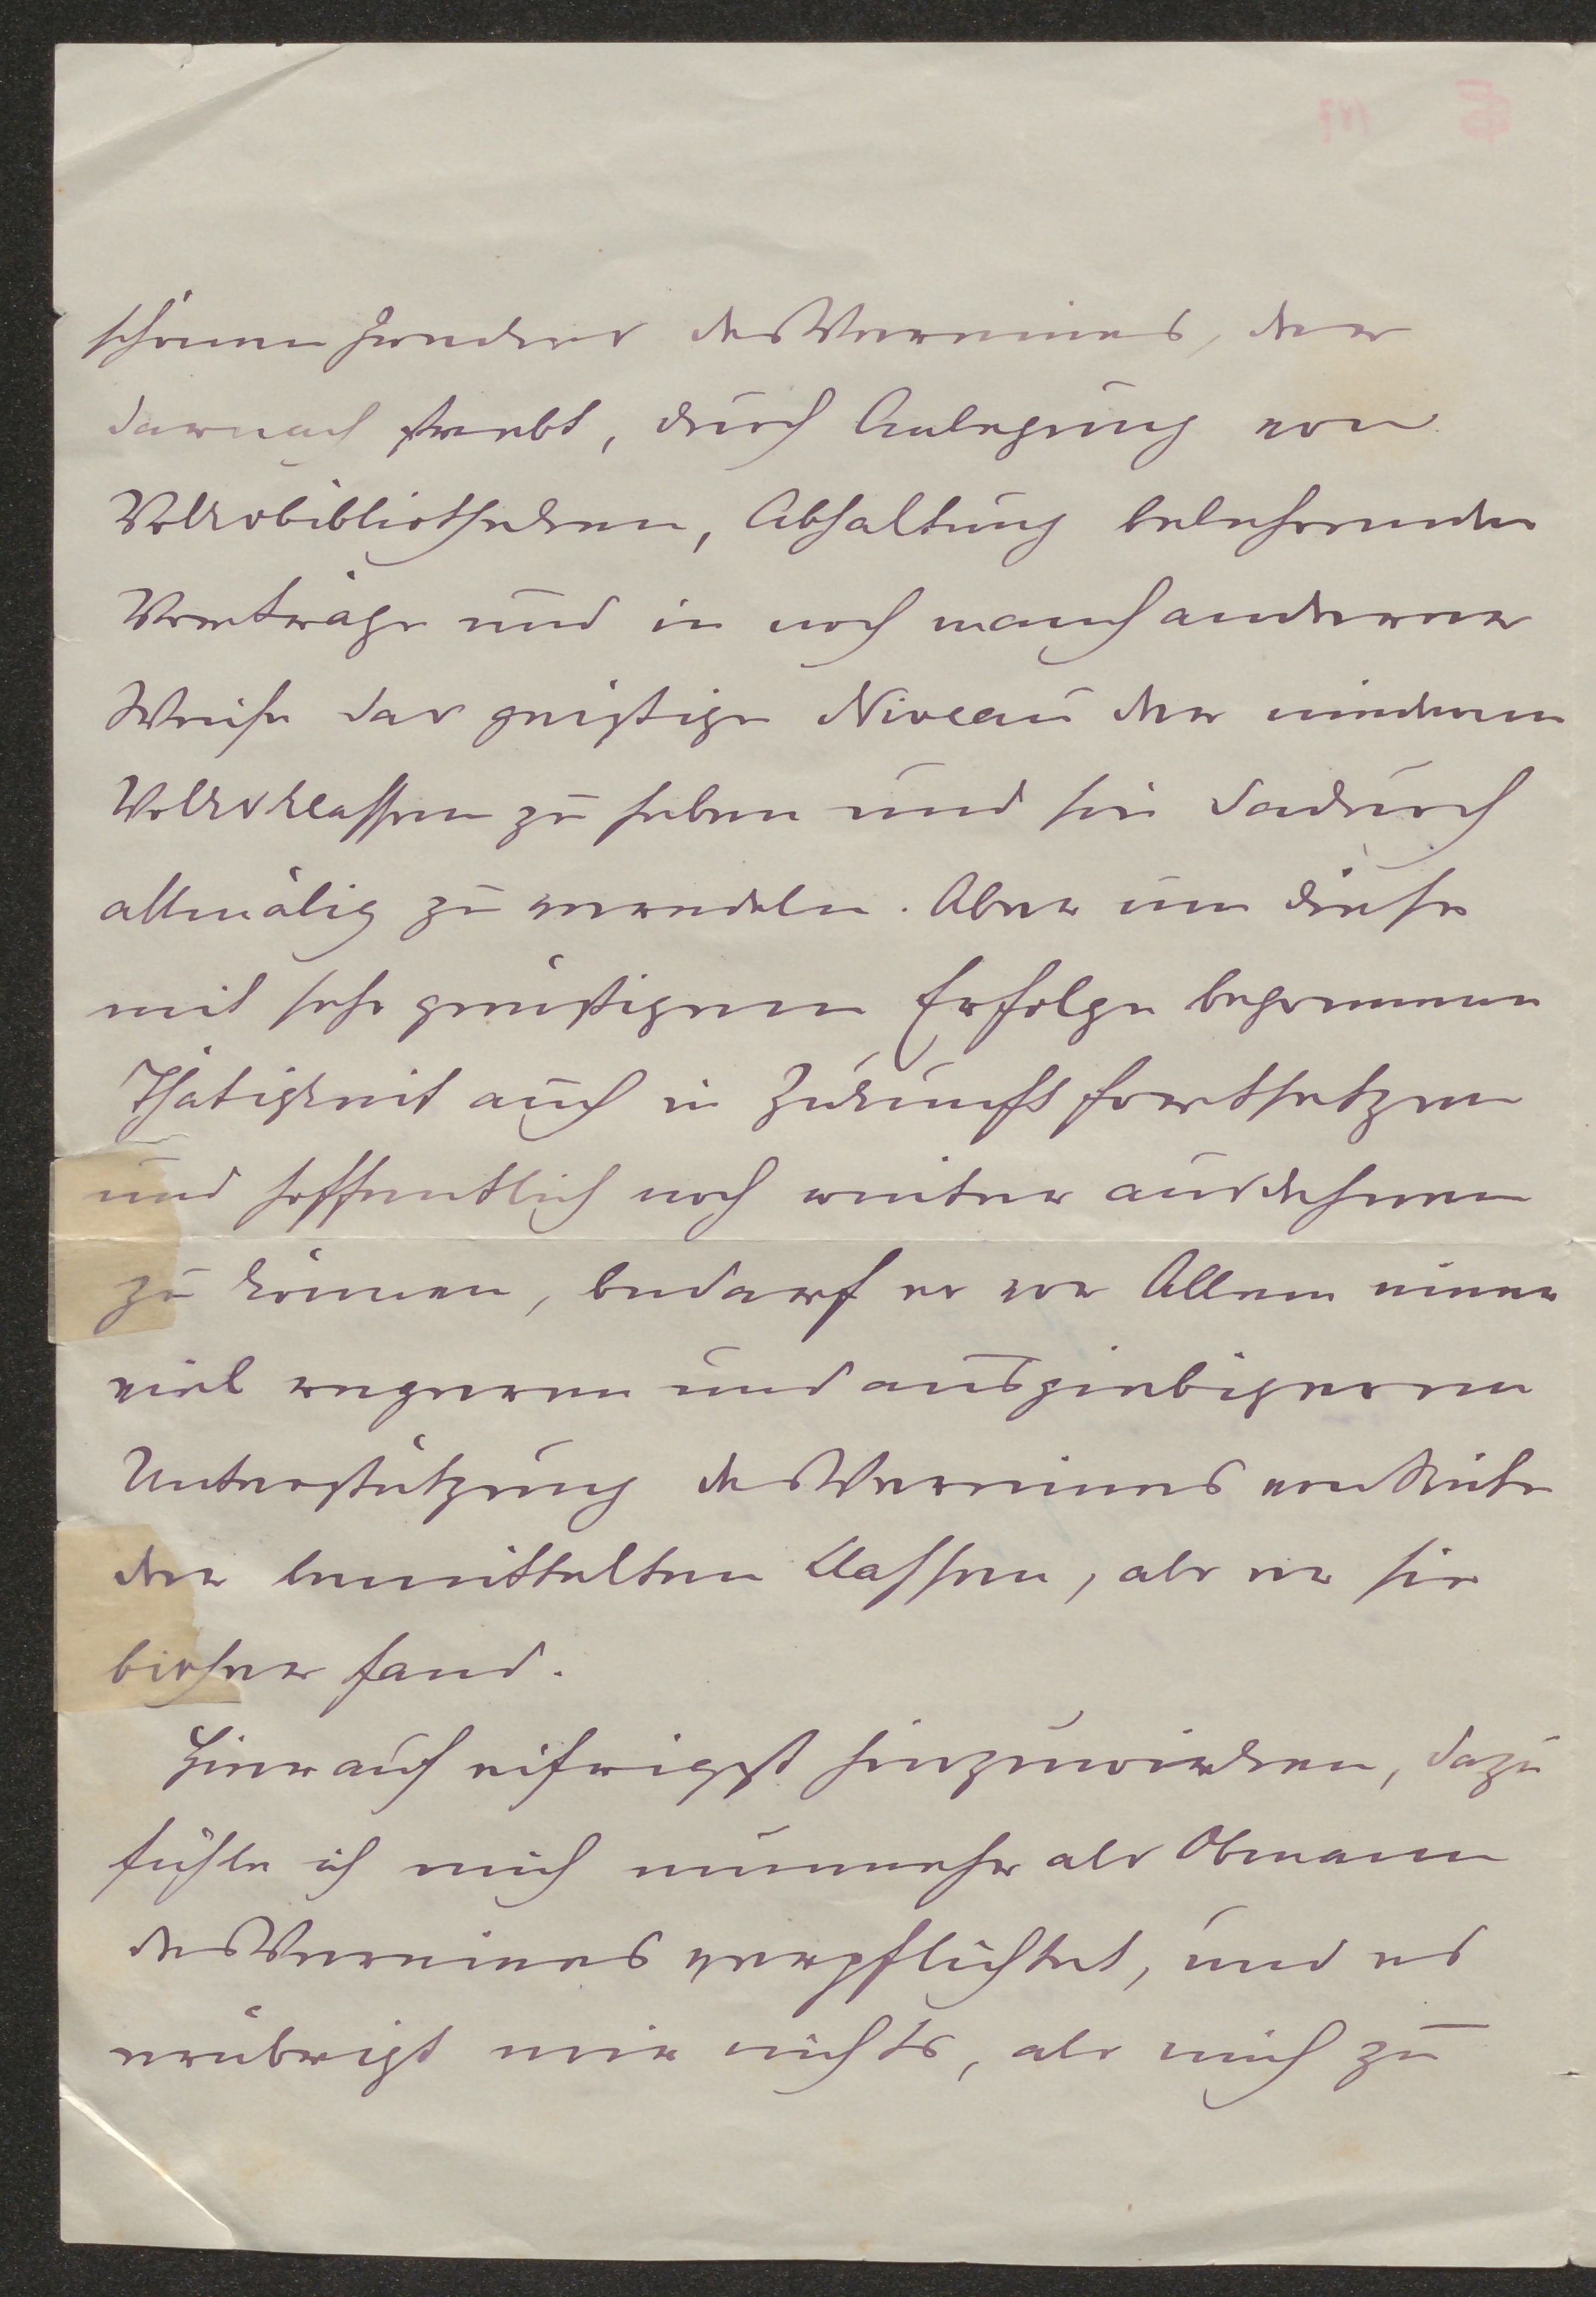 schönen Zweckes des Vereines, der
darnach strebt, durch Anlegung von
Volksbibliotheken, Abhaltung belehrender
Vorträge und in noch manch anderer
Weise das geistige Niveau der niederen
Volksklassen zu heben und sie dadurch
allmälig zu veredeln. Aber um diese
mit sehr günstigem Erfolge begonnene
Thätigkeit auch in Zukunft fortsetzen
und hoffentlich noch weiter ausdehnen
zu können, bedarf es vor Allem einer
viel regeren und ausgiebigeren
Unterstützung des Vereines von Seite
der bemittelten Classen, als er sie
bisher fand.
Hierauf eifrigst hinzuwirken, dazu
fühle ich mich nunmehr als Obmann
des Vereines verpflichtet, und es
erübrigt mir nichts, als mich zu